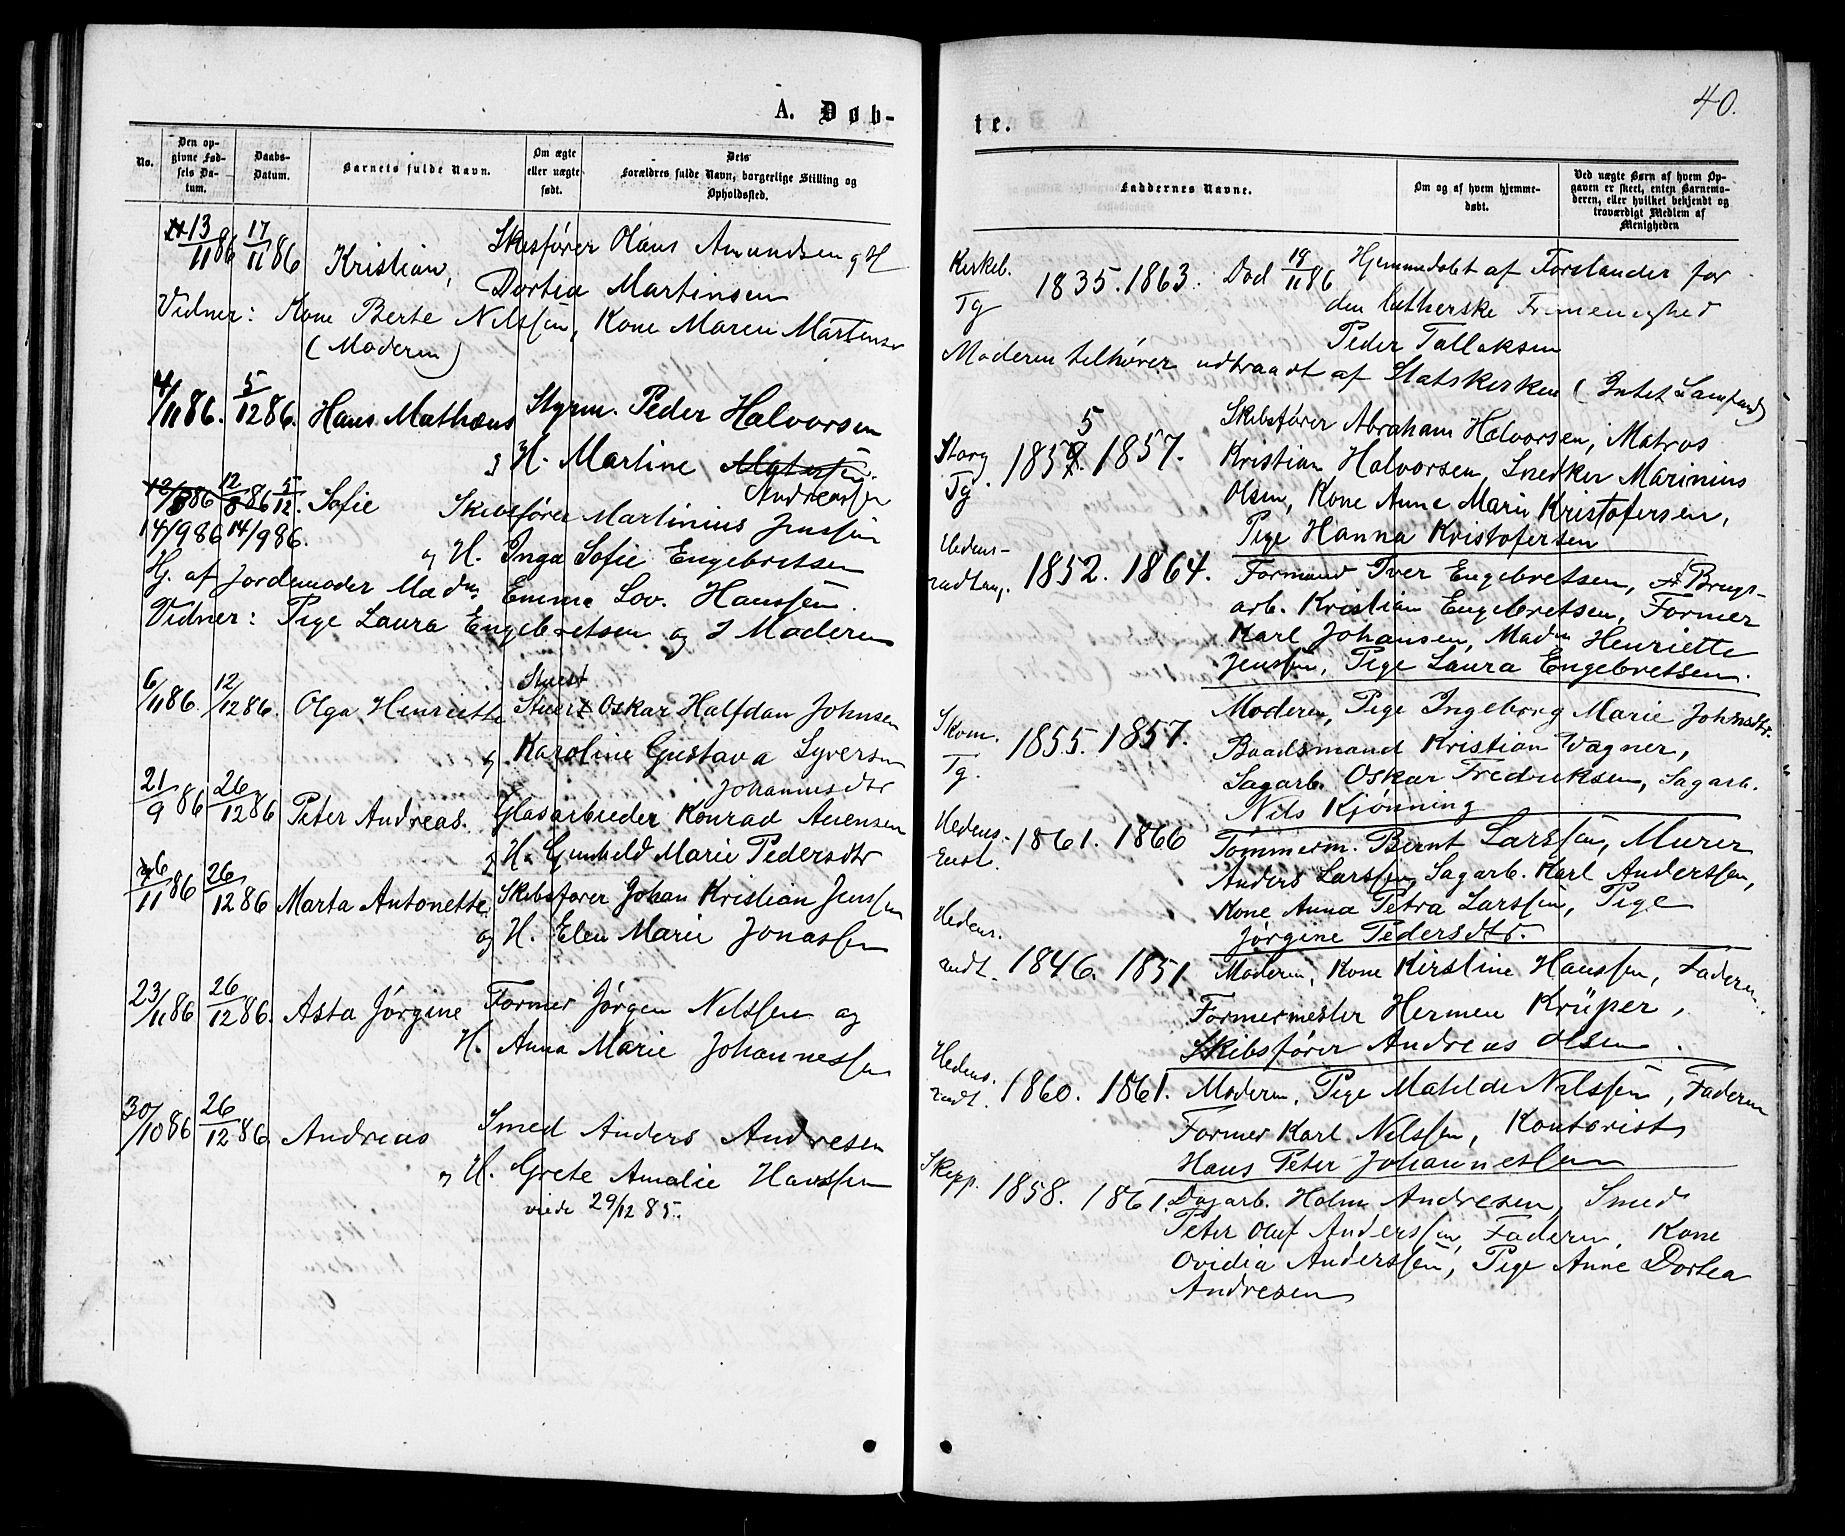 A. Døb-
No.
Den op-
givne Fød-
sels Da-
tum.
Daabs-
Datum.
Barnets fulde Navn.
Om ægte
eller uægte
født.
Dets
Forældres fulde Navn, borgerlige Stilling og
Opholdssted.
13/11 86 17/11 86 Kristian, Skibsfører Olaus Amundsen og H
Dortea Martinsen
Vidner: Kone Berte Nilssen, Kone Maren Martinsen
(Moderen)
4/11 86. 5/12 86. Hans Mathæus Styrm. Peder Halvorsen
og H. Martine
Andreassen
12/8 86 12/8 86 5/12 Sofie Skibsfører Martinius Jenssen
14/9 86 14/9 86. og H. Inga Sofie Engebretsen
Hj. af Jordemoder Madm. Emma Lov. Hanssen.
Vidner: Pige Laura Engebretsen og Moderen
Stuert
6/11 86. 12/12 86. Olga Henriette Stuert Oskar Halfdan Johnsen
og Karoline Gustava Syversen
Johannesdtr
21/9 86 26/12 86 Peter Andreas. Glasarbeider Konrad Auensen
og H. Gunhild Marie Pedersdtr
6/11 86 26/12 86 Marta Antonette, Skibsfører Johan Kristian Jenssen
og H. Elen Marie Jonassen
23/11 86 26/12 86. Asta Jørgine Former Jørgen Nilssen og
H. Anna Marie Johannessen
30/10 86 26/12 86. Andreas Smed Anders Andresen
og H. Grete Amalie Hanssen
viede 29/12 85.
40.
te.
Faddernes Navne.
Om og af hvem hjemme-
døbt.
Ved uægte Børn af hvem Op-
gaven er skeet, enten Barnemo-
deren, eller hvilket bekjendt og
troværdigt Medlem af
Menigheden
Kirkeb. 1835. 1863. Død 19/11 86 Hjemmedøbt af Forstander for
Tg den lutherske Frimenighed
Peder Tallaksen
Moderen tilhører udtraadt af Statskirken (Intet Samfund)
Storg 1855 1857. Skibsfører Abraham Halvorsen, Matros
Tg. Kristian Halvorsen, Snedker Marinius
Olsen, Kone Anne Marie Kristofersen,
Pige Hanna Kristofersen
Hedens- 1852. 1864. Formand Iver Engebretsen, Brugs-
rudtan. arb. Kristian Engebretsen, Former
Karl Johansen, Madm Henriette
Jenssen, Pige Laura Engebretsen.
Skom. 1855. 1857. Moderen, Pige Ingeborg Marie Johnsdtr.
Tg. Baadsmand Kristian Wagner,
Sagarb. Oskar Fredriksen, Sagarb.
Nils Kjønning
Hedens. 1861. 1866 Tømmerm. Bernt Larssen, Murer
Enst. Anders Larssen, Sagarb. Karl Anderssen,
Kone Anna Petra Larssen, Pige
Jørgine Pedersdtr.
Hedens. 1846. 1851 Moderen, Kone Kirstine Hanssen, Faderen,
rudt. Formermester Hermen Krüper,
Skibsfører Andreas Olsen.
Hedens. 1860. 1861. Moderen, Pige Matilde Nilssen, Faderen
rudt. Former Karl Nilssen, Kontorist
Hans Peter Johannessen
Skipp. 1858. 1861. Dagarb. Holm Andresen, Smed
Peter Oluf Anderssen, Faderen, Kone
Ovidia Anderssen, Pige Anne Dortea
Andresen